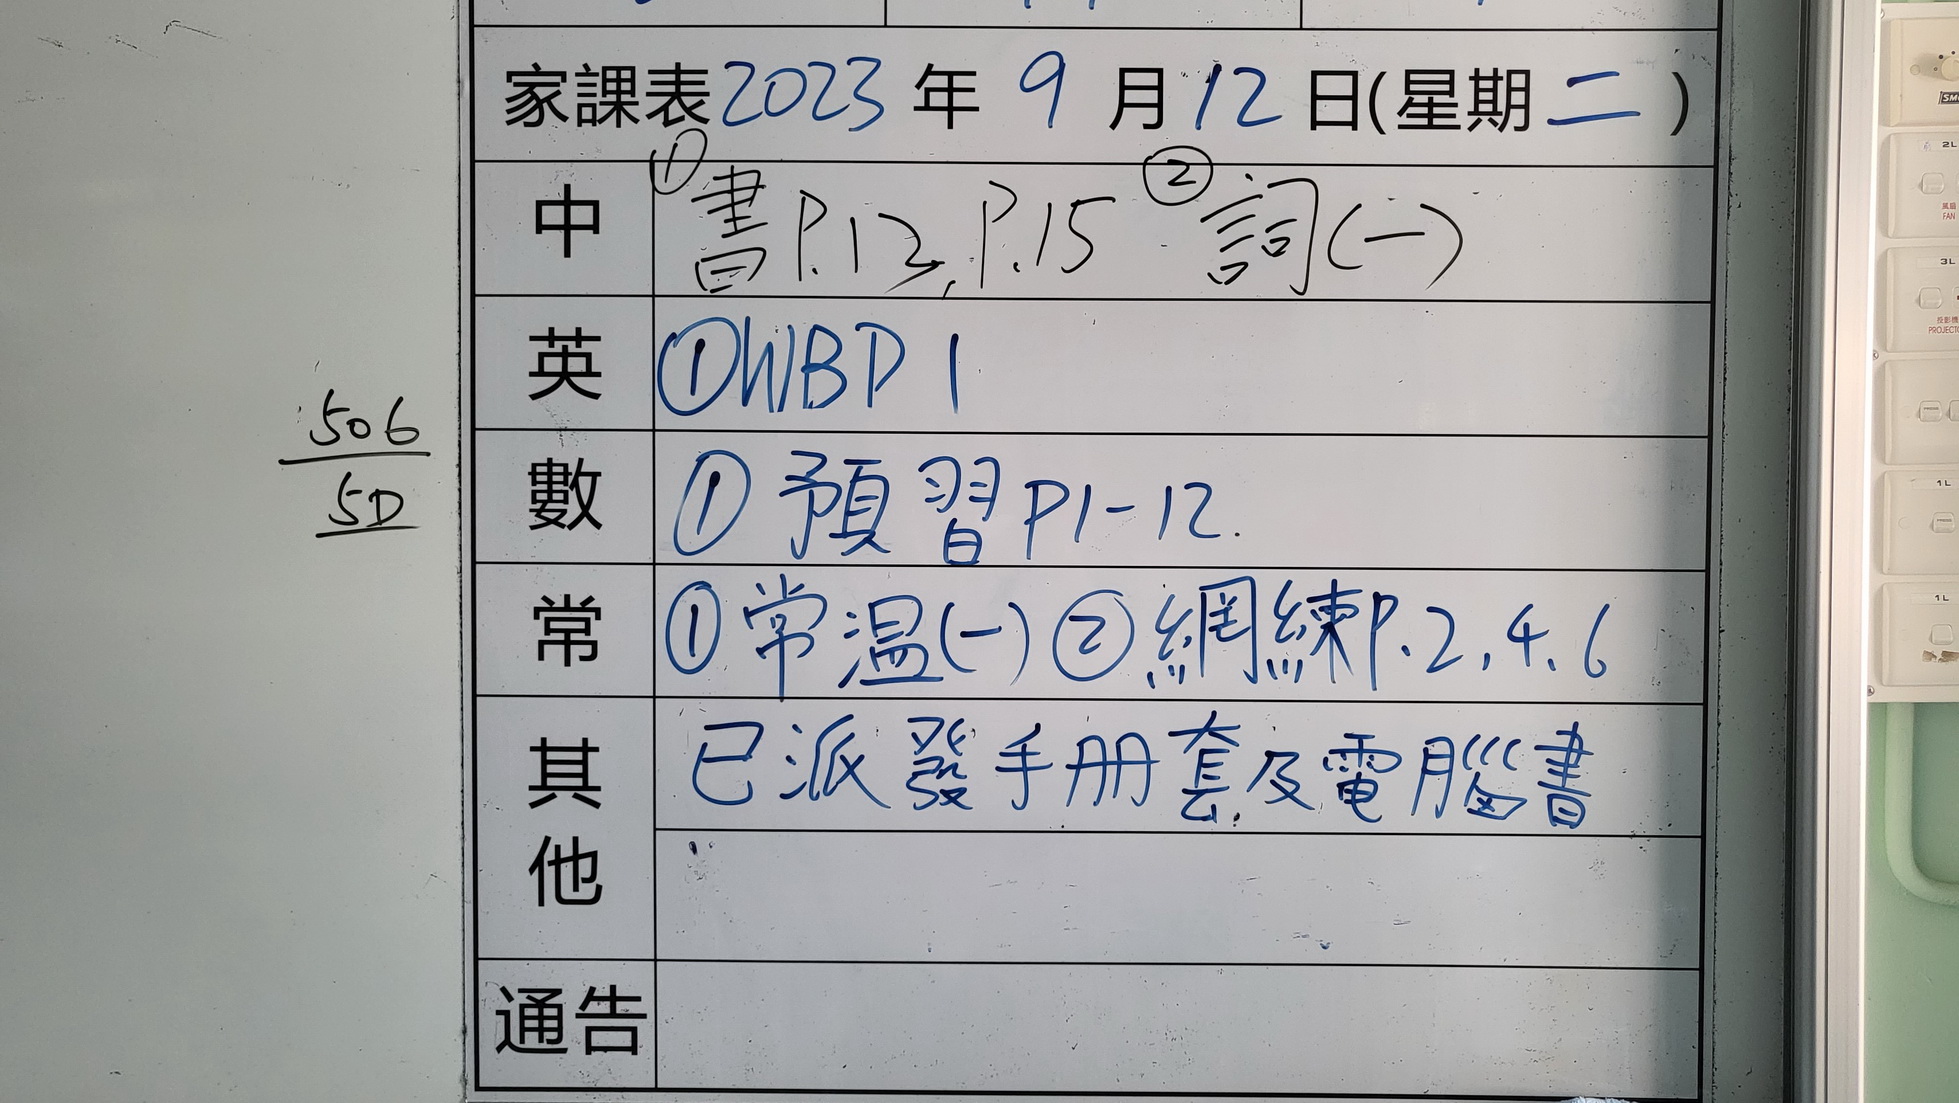 家課表2023年9月12日(星期二)
中 ①書P.12,P.15 ②詞(一)
英 ①WBP1
506
5D
數 ①預習P1-12.
常 ①常溫(一)②網練P.2,4,6
其他 已派發手册套及電腦書
通告
2L
風扇
FAN
3L
投影機
1L
1L